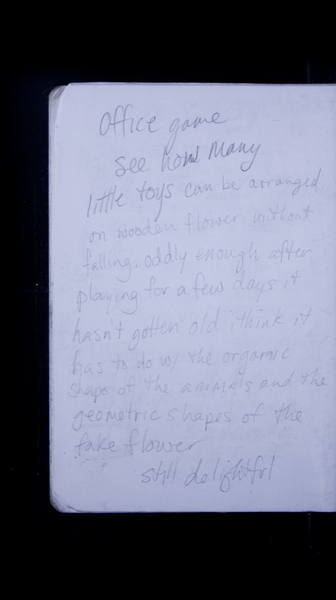 office game
see how many
little toys can be arranged
on wooden flower without
falling. oddly enough after
playing for a few days it
hasn't gotten old i think it
has to do w/ the organic
shape of the animals and the
geometric shapes of the
fake flower
still delightful